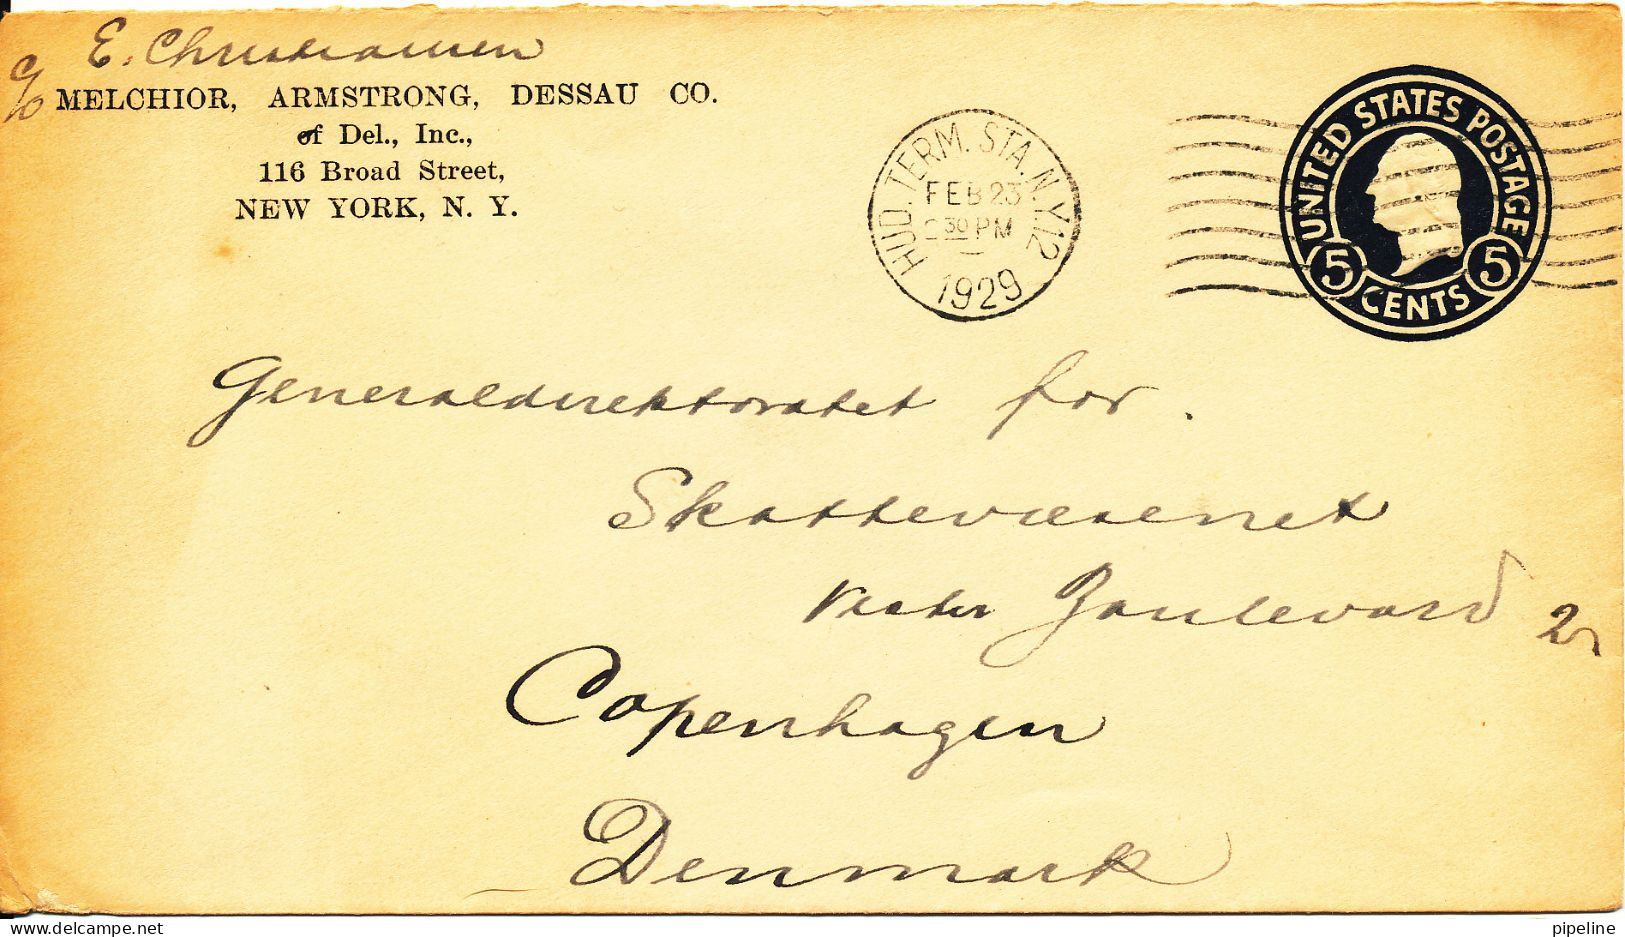 E. Christiansen
c/o MELCHIOR, ARMSTRONG, DESSAU CO.
of Del., Inc.,
116 Broad Street,
NEW YORK, N. Y.
HUD. TERM. STA. N.Y. 12
FEB 23
30 PM
1929
UNITED STATES POSTAGE
5 CENTS 5
Generaldirektoratet for.
Skattevæsenet
Vester Boulevard
Copenhagen
Denmark
delcampe.net
pipeline